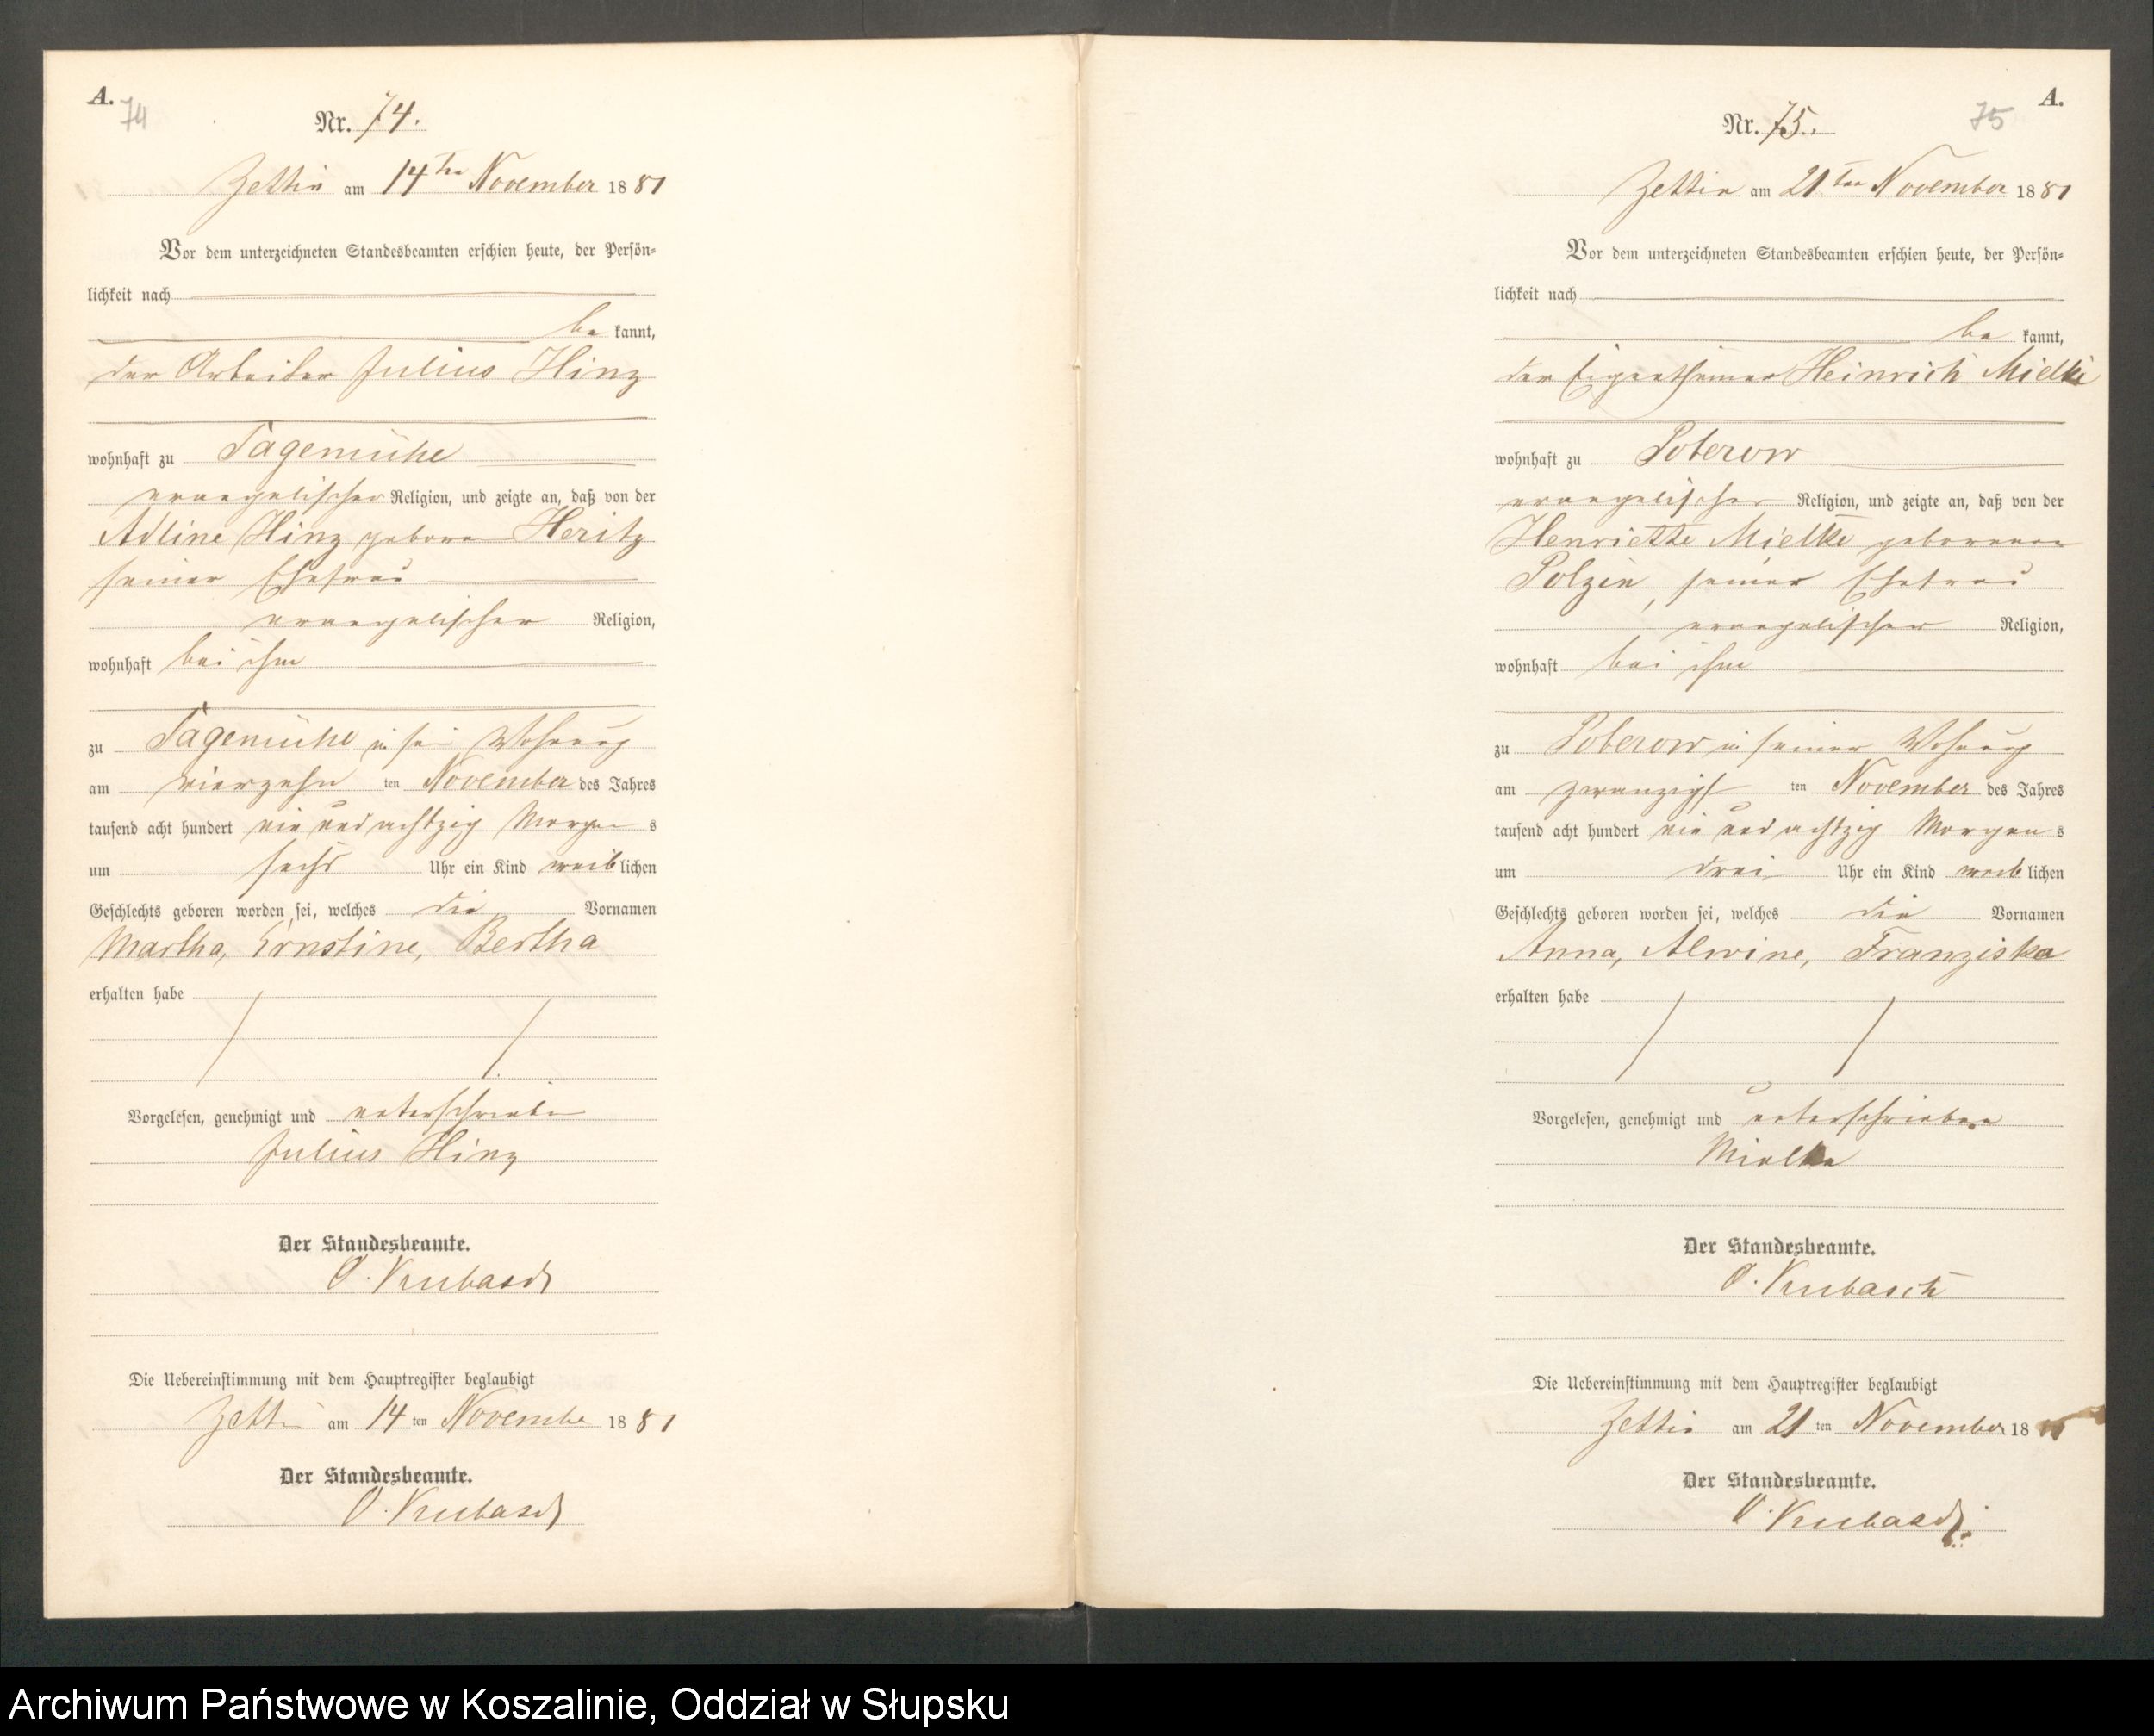 A.
74
Nr. 74.
Zettin am 14ten November 1881
Vor dem unterzeichneten Standesbeamten erschien heute, der Persön-
lichkeit nach
be kannt,
der Arbeiter Julius Hinz
wohnhaft zu
evangelischer Religion, und zeigte an, daß von der
Adline Hinz geboren Heritz
seiner Ehefrau
evangelischer Religion,
wohnhaft bei ihm
zu in sei Wohnung
am vierzehn ten November des Jahres
tausend acht hundert ein und achtzig Morgen s
um sechs Uhr ein Kind weib lichen
Geschlechts geboren worden sei, welches die Vornamen
Martha, Ernstine, Bertha
erhalten habe
Vorgelesen, genehmigt und unterschrieben
Julius Hinz
Der Standesbeamte.
O. Krubasch
Die Uebereinstimmung mit dem Hauptregister beglaubigt
Zettin am 14 ten November 1881
Der Standesbeamte.
O. Krubasch
A.
75
Nr. 75.
Zettin am 21ten November 1881
Vor dem unterzeichneten Standesbeamten erschien heute, der Persön-
lichkeit nach
be kannt,
der Eigenthümer Heinrich Mielke
wohnhaft zu Poberow
evangelischer Religion, und zeigte an, daß von der
Henriette Mielke geborenen
Polzin, seiner Ehefrau
evangelischer Religion,
wohnhaft bei ihm
zu Poberow in seiner Wohnung
am zwanzigst ten November des Jahres
tausend acht hundert ein und achtzig Morgen s
um drei Uhr ein Kind weib lichen
Geschlechts geboren worden sei, welches die Vornamen
Anna, Alwine, Franziska
erhalten habe
Vorgelesen, genehmigt und unterschrieben
Mielke
Der Standesbeamte.
O. Krubasch
Die Uebereinstimmung mit dem Hauptregister beglaubigt
Zettin am 21 ten November 18
Der Standesbeamte.
O. Krubasch
Archiwum Państwowe w Koszalinie, Oddział w Słupsku